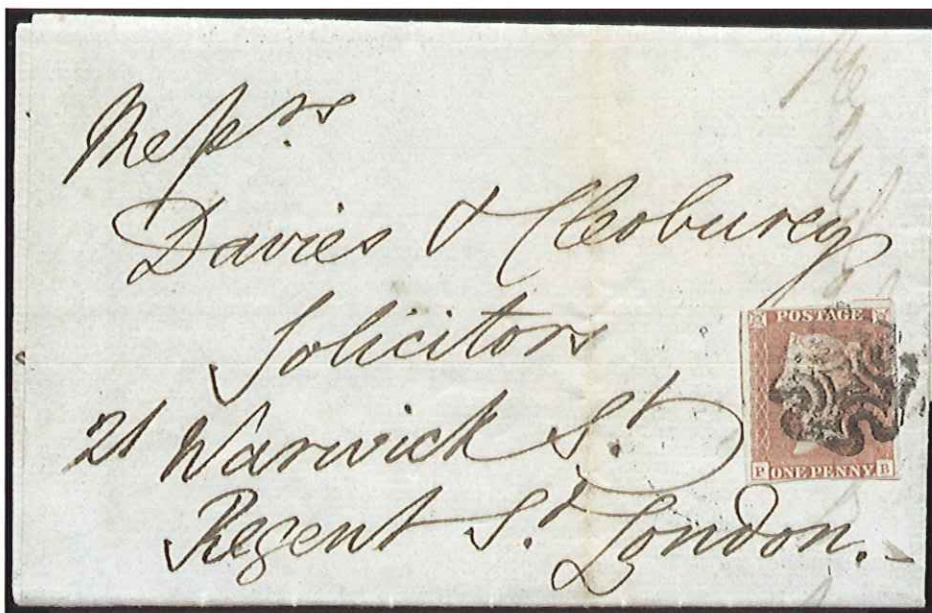 Messrs
Davies & Cleoburey
Solicitors
21 Warwick St
Regent St. London.
POSTAGE
P ONE PENNY B